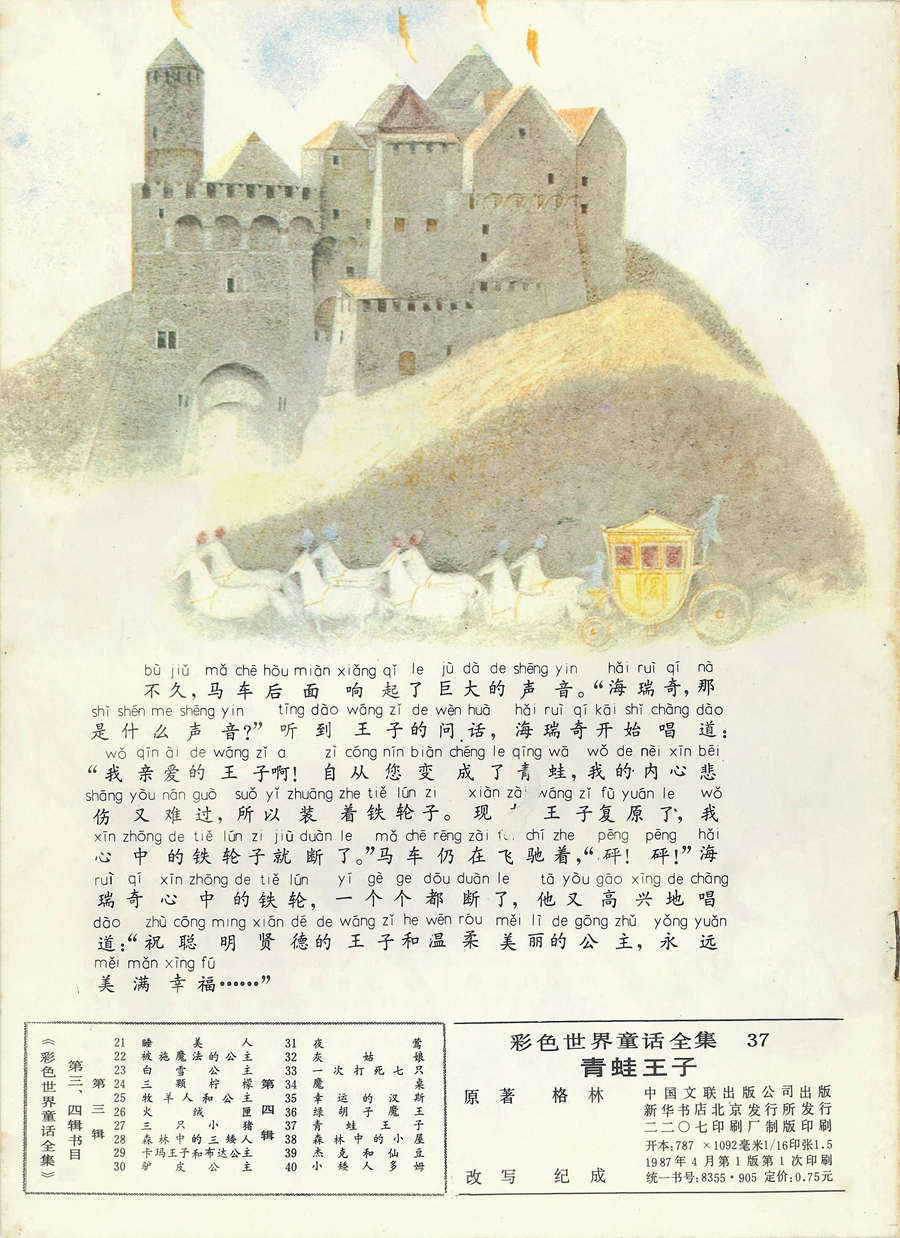 bù jiǔ mǎ chē hòu miàn xiǎng qǐ le jù dà de shēng yin hǎi ruì qí nà
不久，马车后面响起了巨大的声音。“海瑞奇，那
shì shén me shēng yin tīng dào wáng zǐ de wèn huà hǎi ruì qí kāi shǐ chàng dào
是什么声音？”听到王子的问话，海瑞奇开始唱道：
wǒ qīn ài de wáng zǐ a zì cóng nín biàn chéng le qīng wā wǒ de nèi xīn bēi
“我亲爱的王子啊！自从您变成了青蛙，我的内心悲
shāng yòu nán guò suǒ yǐ zhuāng zhe tiě lún zi xiàn zài wáng zǐ fù yuán le wǒ
伤又难过，所以装着铁轮子。现 王子复原了，我
xīn zhōng de tiě lún zi jiù duàn le mǎ chē réng zài chí zhe pēng pēng hǎi
心中的铁轮子就断了。”马车仍在飞驰着，“砰！砰！”海
ruì qí xīn zhōng de tiě lún yí gè ge dōu duàn le tā yòu gāo xìng de chàng
瑞奇心中的铁轮，一个个都断了，他又高兴地唱
dào zhù cōng mıng xián dé de wáng zǐ he wēn róu měi lì de gōng zhǔ yǒng yuǎn
道：“祝聪明贤德的王子和温柔美丽的公主，永远
měi mǎn xìng fú
美满幸福……”
《彩色世界童话全集》
第三、四辑书目
第三辑
21 睡美人
22 被施魔法的公主
23 白雪公主
24 三颗柠檬
25 牧羊人和公主
26 火绒匣
27 三只小猪
28 森林中的三矮人
29 卡玛王子和布达公主
30 驴皮公主
第四辑
31 夜莺
32 灰姑娘
33 一次打死七只
34 魔桌
35 幸运的汉斯
36 绿胡子魔王
37 青蛙王子
38 森林中的小屋
39 杰克和仙豆
40 小矮人多姆
彩色世界童话全集 37
青蛙王子
原著 格林
改写 纪成
中国文联出版公司出版
新华书店北京发行所发行
二二〇七印刷厂制版印刷
开本:787×1092毫米1/16印张1.5
1987年4月第1版第1次印刷
统一书号:8355·905 定价:0.75元